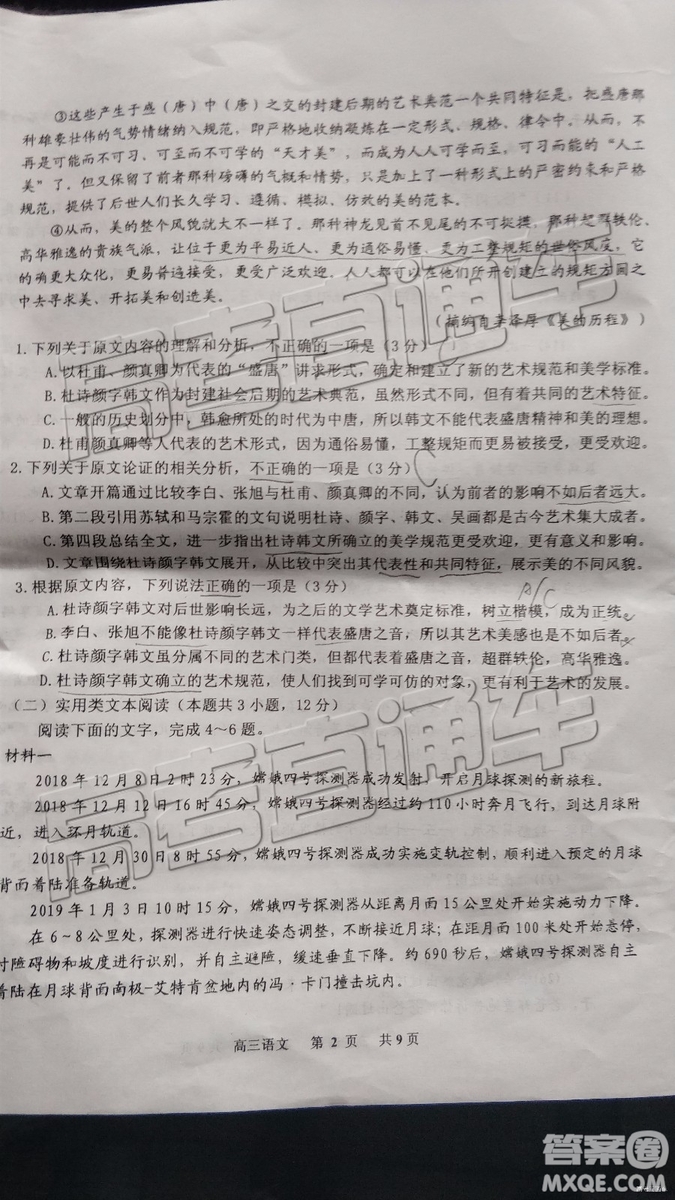 ③这些产生于盛（唐）中（唐）之交的封建后期的艺术类范一个共同特征是，把盛唐那
种雄豪壮伟的气势情绪纳入规范，即严格地收纳凝炼在一定形式、规格、律令中。从而，不
再是可能而不可习、可至而不可学的“天才美”，而成为人人可学而至，可习而能的“人工
美”了。但又保留了前者那种磅礴的气概和情势，只是加上了一种形式上的严密约束和严格
规范，提供了后世人们长久学习、遵循、模拟、仿效的美的范本。
④从而，美的整个风貌就大不一样了。那种神龙见首不见尾的不可捉摸，那种超群轶伦、
高华雅逸的贵族气派，让位于更为平易近人、更为通俗易懂、更为工整规矩的世俗风度，它
的确更大众化，更易普遍接受，更受广泛欢迎。人人都可以在他们所开创建立的规矩方圆之
中去寻求美、开拓美和创造美。
（摘编自李泽厚《美的历程》）
1.下列关于原文内容的理解和分析，不正确的一项是（3分）（ ）
A.以杜甫、颜真卿为代表的“盛唐”讲求形式，确定和建立了新的艺术规范和美学标准。
B.杜诗颜字韩文作为封建社会后期的艺术典范，虽然形式不同，但有着共同的艺术特征。
C.一般的历史划分中，韩愈所处的时代为中唐，所以韩文不能代表盛唐精神和美的理想。
D.杜甫颜真卿等人代表的艺术形式，因为通俗易懂，工整规矩而更易被接受，更受欢迎。
2.下列关于原文论证的相关分析，不正确的一项是（3分）（
A.文章开篇通过比较李白、张旭与杜甫、颜真卿的不同，认为前者的影响不如后者远大。
B.第二段引用苏轼和马宗霍的文句说明杜诗、颜字、韩文、吴画都是古今艺术集大成者。
C.第四段总结全文，进一步指出杜诗韩文所确立的美学规范更受欢迎，更有意义和影响。
D.文章围绕杜诗颜字韩文展开，从比较中突出其代表性和共同特征，展示美的不同风貌。
3.根据原文内容，下列说法正确的一项是（3分）
A/C
A.杜诗颜字韩文对后世影响长远，为之后的文学艺术奠定标准，树立楷模，成为正统。
B.李白、张旭不能像杜诗颜字韩文一样代表盛唐之音，所以其艺术美感亦不如后者。
C.杜诗颜字韩文虽分属不同的艺术门类，但都代表着盛唐之音，超群轶伦，高华雅逸。
D.杜诗颜字韩文确立的艺术规范，使人们找到可学可仿的对象，更有利于艺术的发展。
（二）实用类文本阅读（本题共3小题，12分）
阅读下面的文字，完成4~6题。
材料一
2018年12月8日2时23分，嫦娥四号探测器成功发射，开启月球探测的新旅程。
2018年12月12日16时45分，嫦娥四号探测器经过约110小时奔月飞行，到达月球附
近，进入环月轨道。
2018年12月30日8时55分，嫦娥四号探测器成功实施变轨控制，顺利进入预定的月球
背面着陆准备轨道。
2019年1月3日10时15分，嫦娥四号探测器从距离月面15公里处开始实施动力下降。
在6~8公里处，探测器进行快速姿态调整，不断接近月球；在距月面100米处开始悬停，
对障碍物和坡度进行识别，并自主避险，缓速垂直下降。约690秒后，嫦娥四号探测器自主
着陆在月球背面南极-艾特肯盆地内的冯·卡门撞击坑内。
高三语文 第2页 共9页
高考直通车
高考直通车
答案圈
MXQE.COM